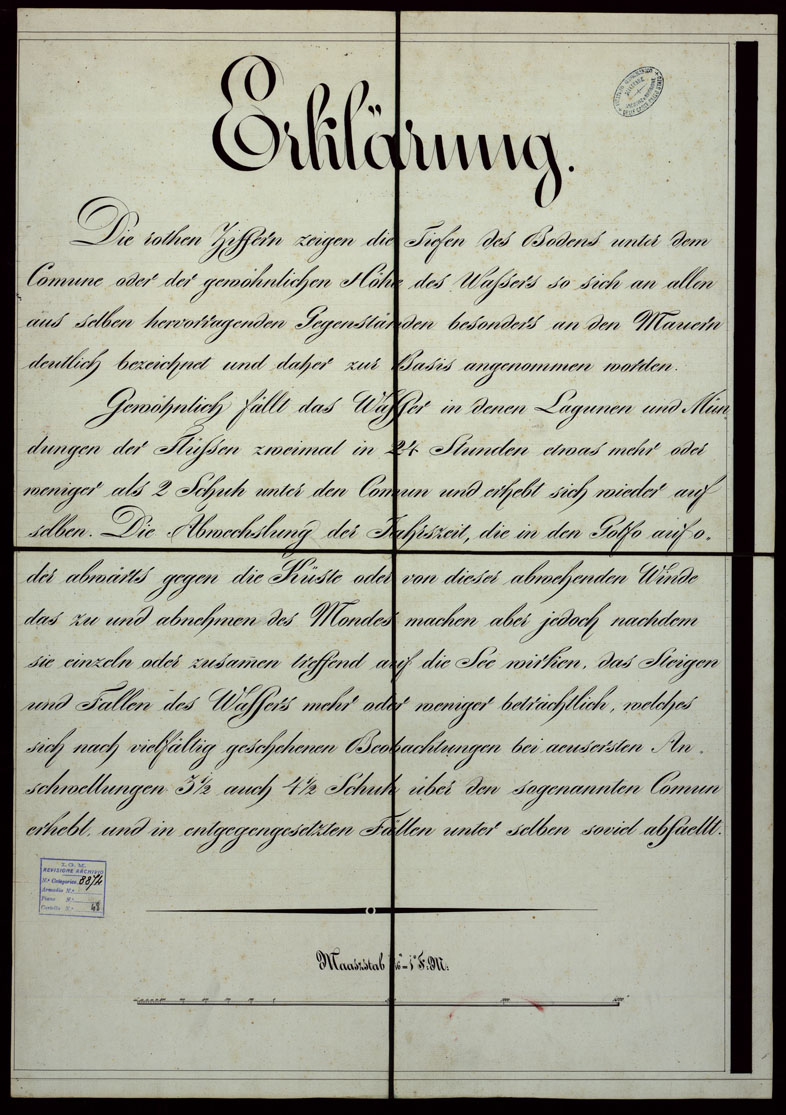 Erklärung.
Die rothen Ziffern zeigen die Tiefen des Bodens unter dem
Comune oder der gewöhnlichen Höhe des Waſsers so sich an allen
aus selben hervorragenden Gegenständen besonders an den Mauern
deutlich bezeichnet und daher zur Basis angenommen worden.
Gewöhnlich fällt das Waſser in denen Lagunen und Mün
dungen der Flüssen zweimal in 24 Stunden etwas mehr oder
weniger als 2 Schuh unter den Comun und erhebt sich wieder auf
selben. Die Abwechslung der Jahrszeit, die in den Golfo auf o.
der abwärts gegen die Küste oder von dieser abwehenden Winde
das zu und abnehmen des Mondes machen aber jedoch nachdem
sie einzeln oder zusam̅en treffend auf die See wirken, das Steigen
und Fallen des Waſsers mehr oder weniger beträchtlich, welches
sich nach vielfältig geschehenen Beobachtungen bei aeusersten An.
schwellungen 3½ auch 4½ Schuh über den sogenannten Comun
erhebt, und in entgegengesetzten Fällen unter selben soviel abfaellt.
I. G. M.
REVISIONE ARCHIVIO
N.º Categorica 8874
Armadio N.º
Piano N.º
Cartella N.º 48
Maaszstab